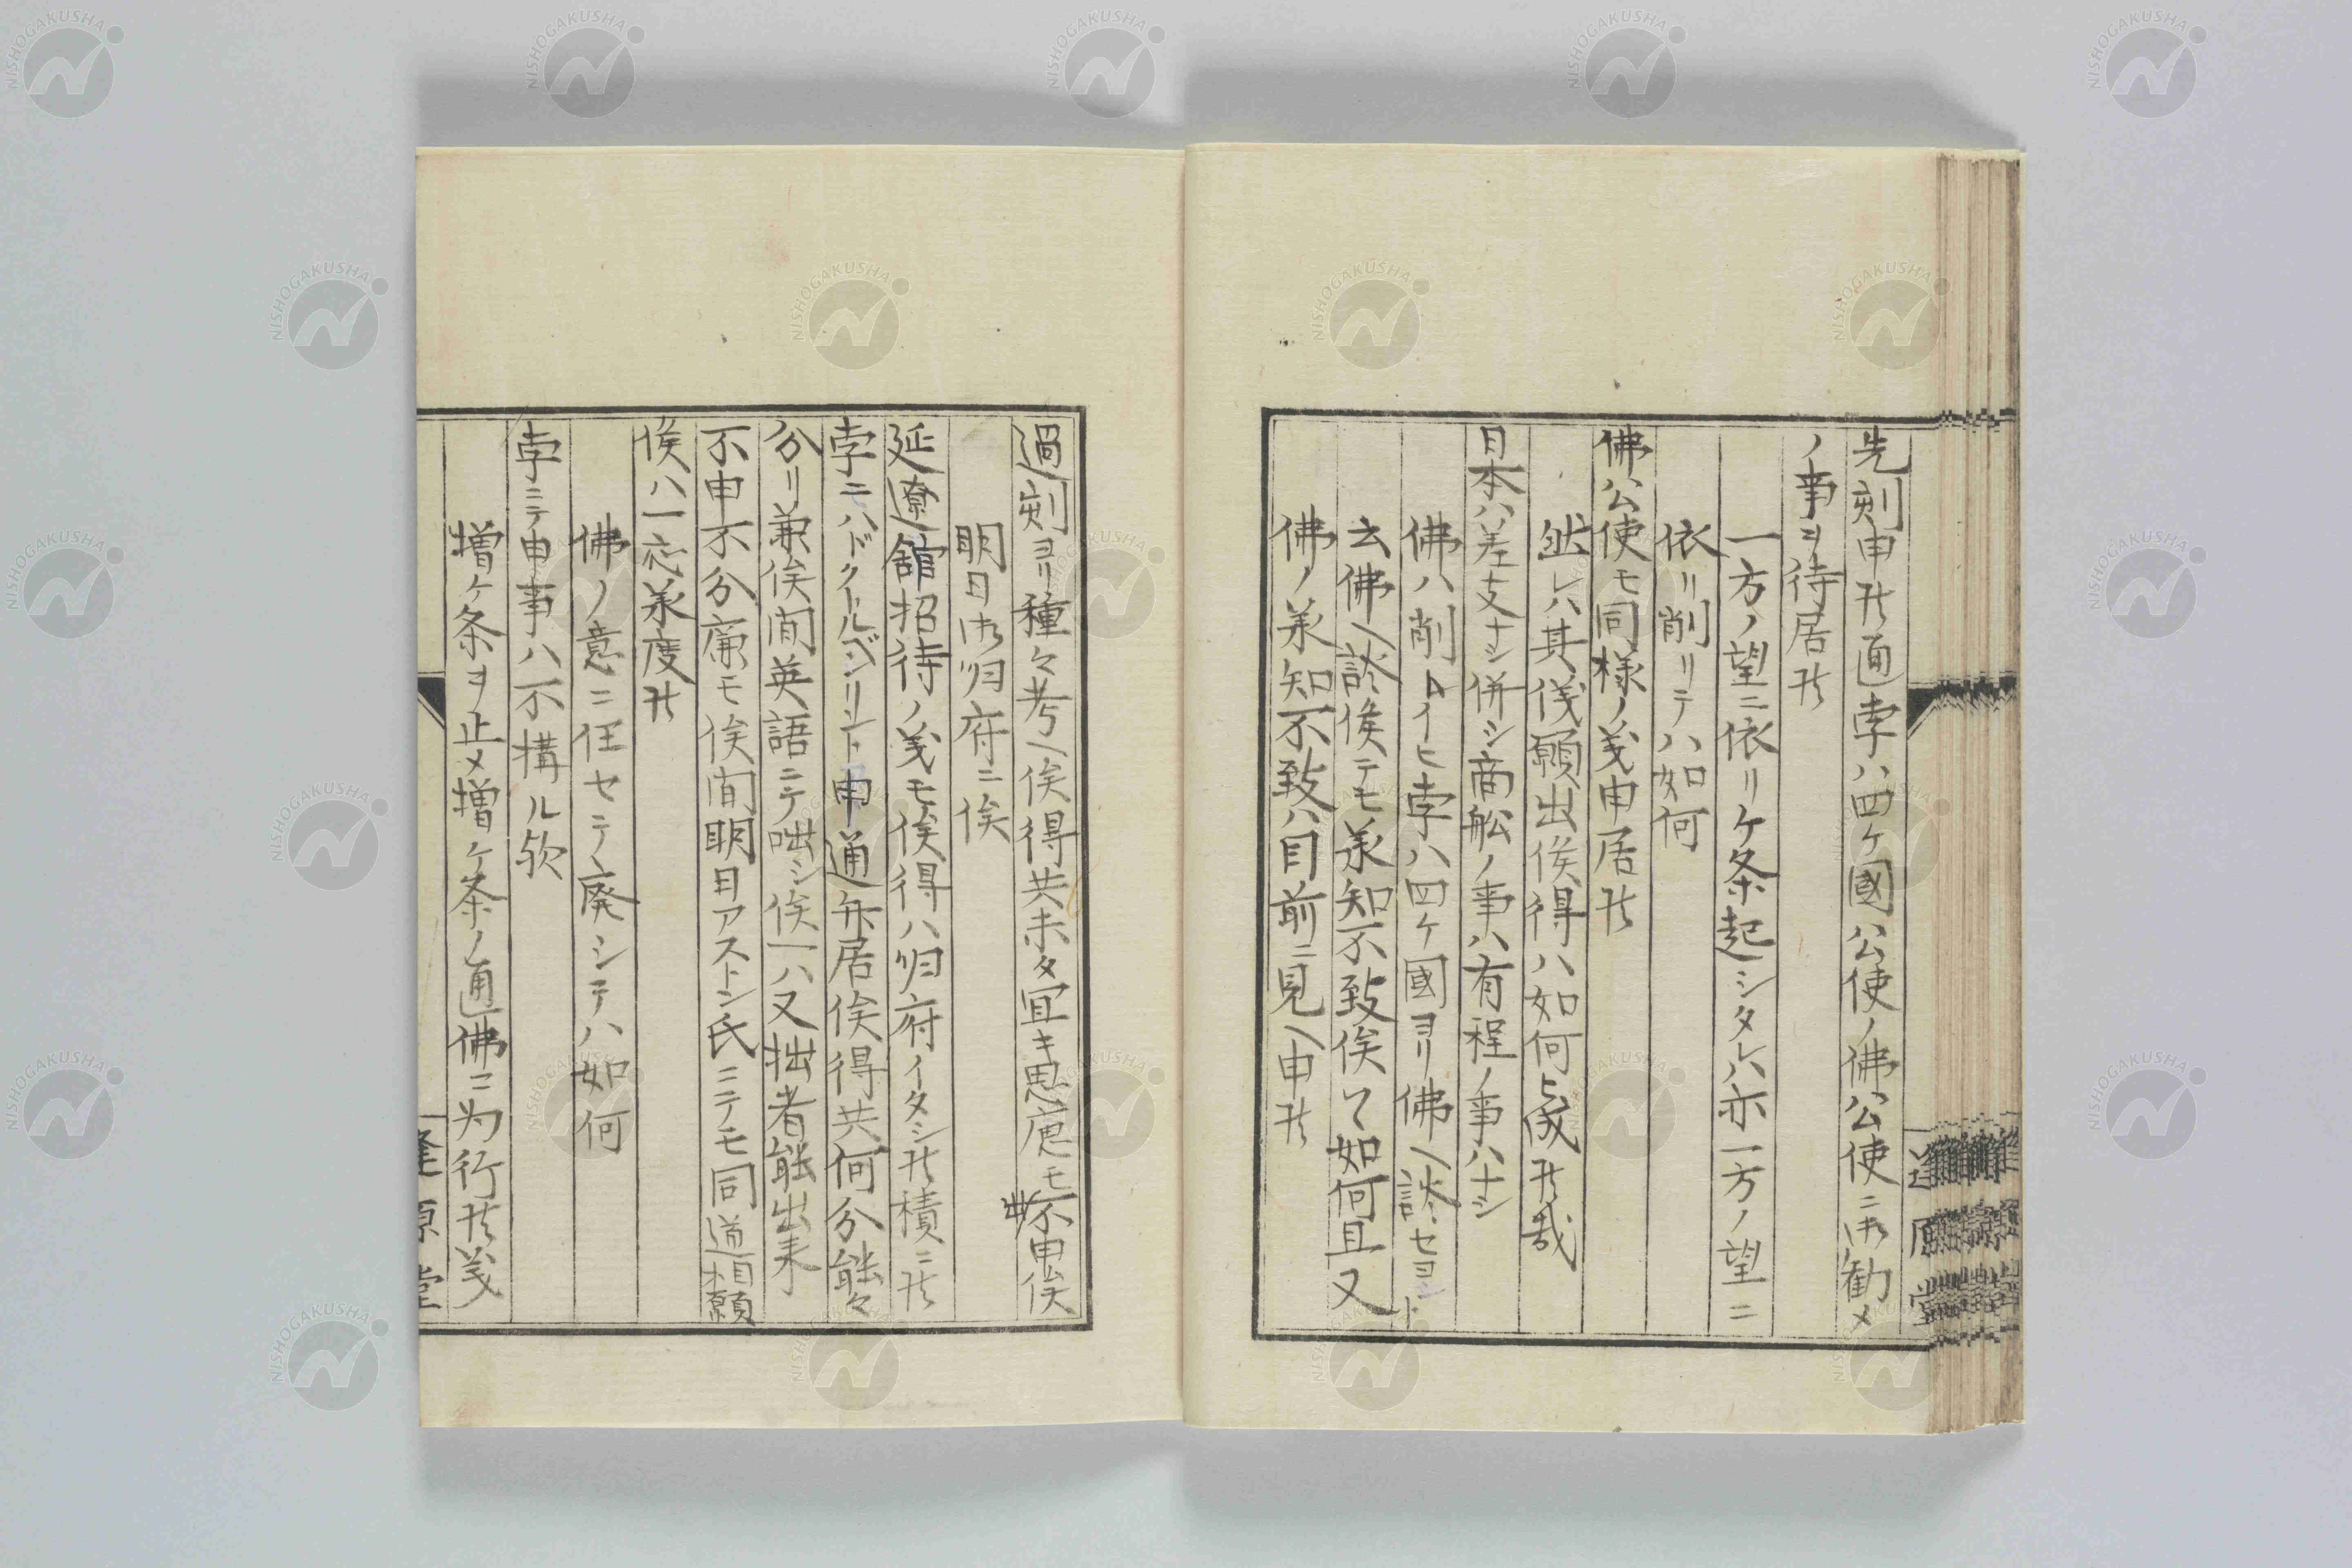 先刻申候通孛ハ四ケ國公使ノ佛公使ニ御勧メ
ノ事ヲ待居候
一方ノ望ニ依リケ条起シタレハ亦一方ノ望ニ
依リ削リテハ如何
佛公使モ同様ノ義申居候
然レハ其儀願出候得ハ如何ト成候哉
日本ハ差支ナシ併シ商舩ノ事ハ有程ノ事ハナシ
佛ハ削トイヒ孛ハ四ケ國ヨリ佛ヘ談セヨト
云佛ヘ談候テモ承知不致候ハヽ如何且又
佛ノ承知不致ハ目前ニ見ヘ申候
過刻ヨリ種々考ヘ候得共未タ宜キ思慮モ出不申候
明日御帰府ニ候
延遼舘招待ノ義モ候得ハ帰府イタシ候積ニ候
孛ニハドクトルベンリント申通弁居候得共何分能々
分リ兼候間英語ニテ咄シ候ヘハ又拙者能出来
不申不分廉モ候間明日アストン氏ニテモ同道相願
候ハ一応承度候
佛ノ意ニ任セテ廃シテハ如何
孛ニテ申事ハ不構ル歟
増ケ条ヲ止メ増ケ条ノ通佛ニ为行候義
逢原堂
逢原堂
NISHOGAKUSHA